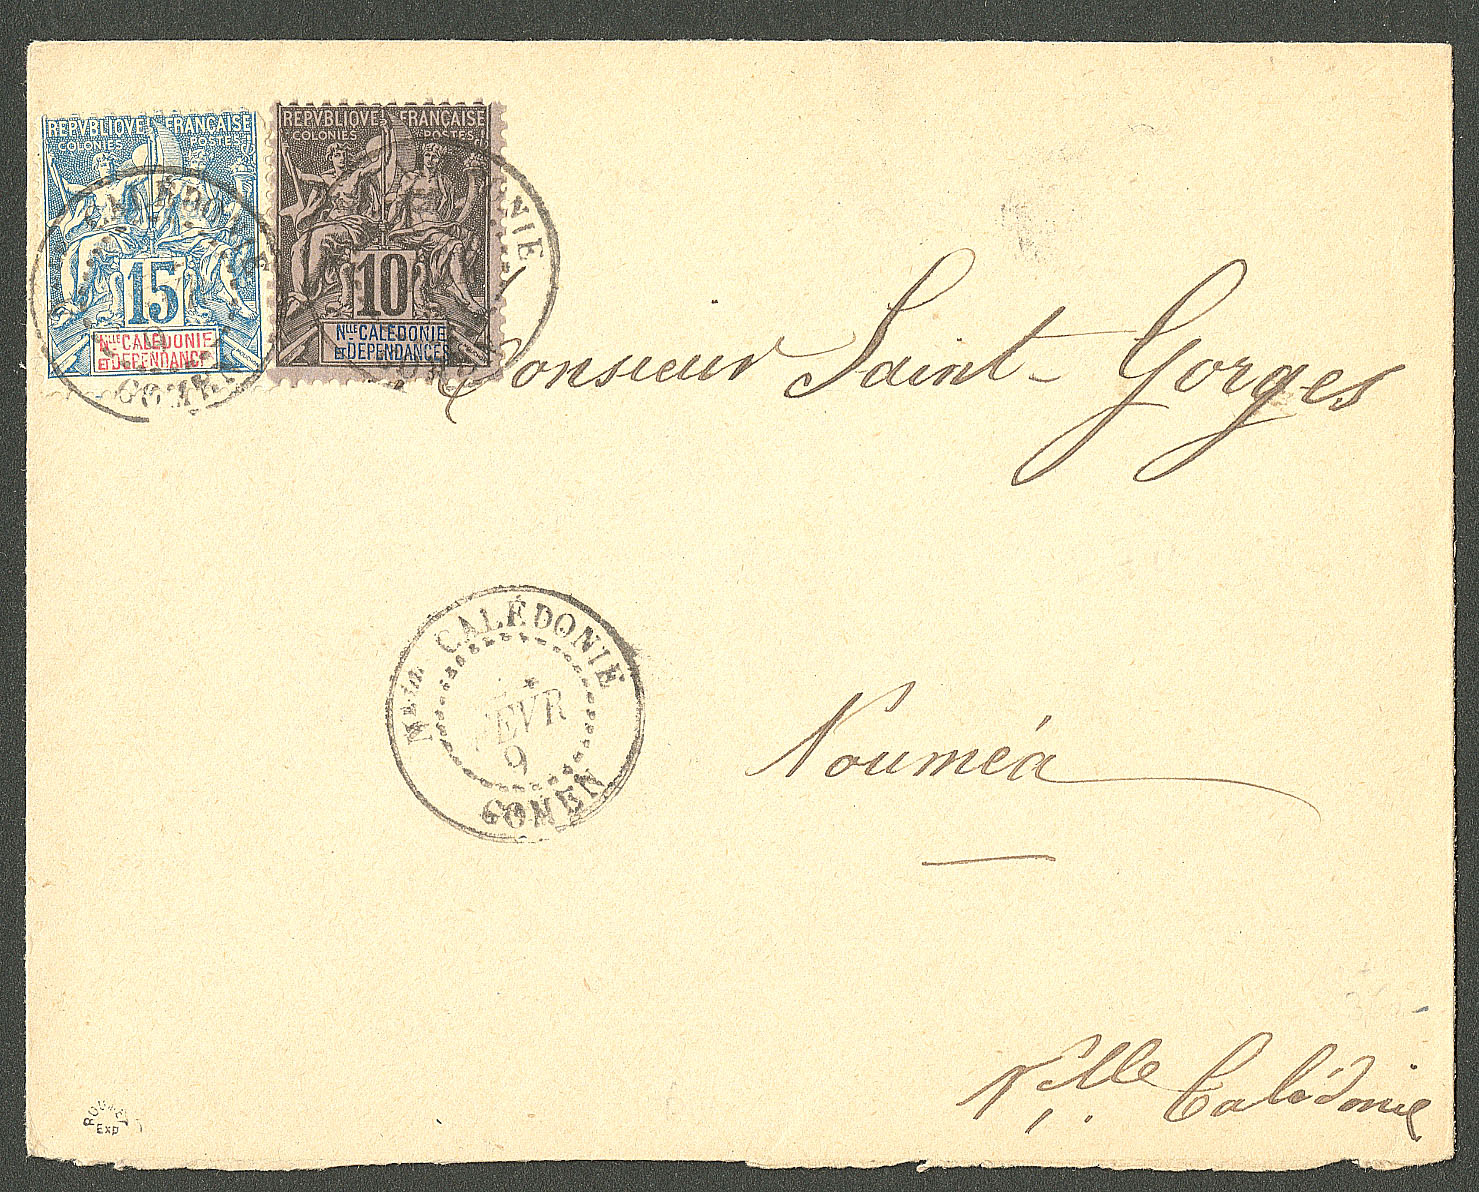 REPVBLIQVE FRANÇAISE
COLONIES POSTES
15
NLLE CALEDONIE
ET DEPENDANCES
REPVBLIQVE FRANÇAISE
COLONIES POSTES
10
NLLE CALEDONIE
ET DEPENDANCES
CALÉDONIE
Monsieur Saint-Gorges
CALÉDONIE
FEVR
9
GOMEN
Nouméa
Nlle Calédonie
ROUMET
EXP